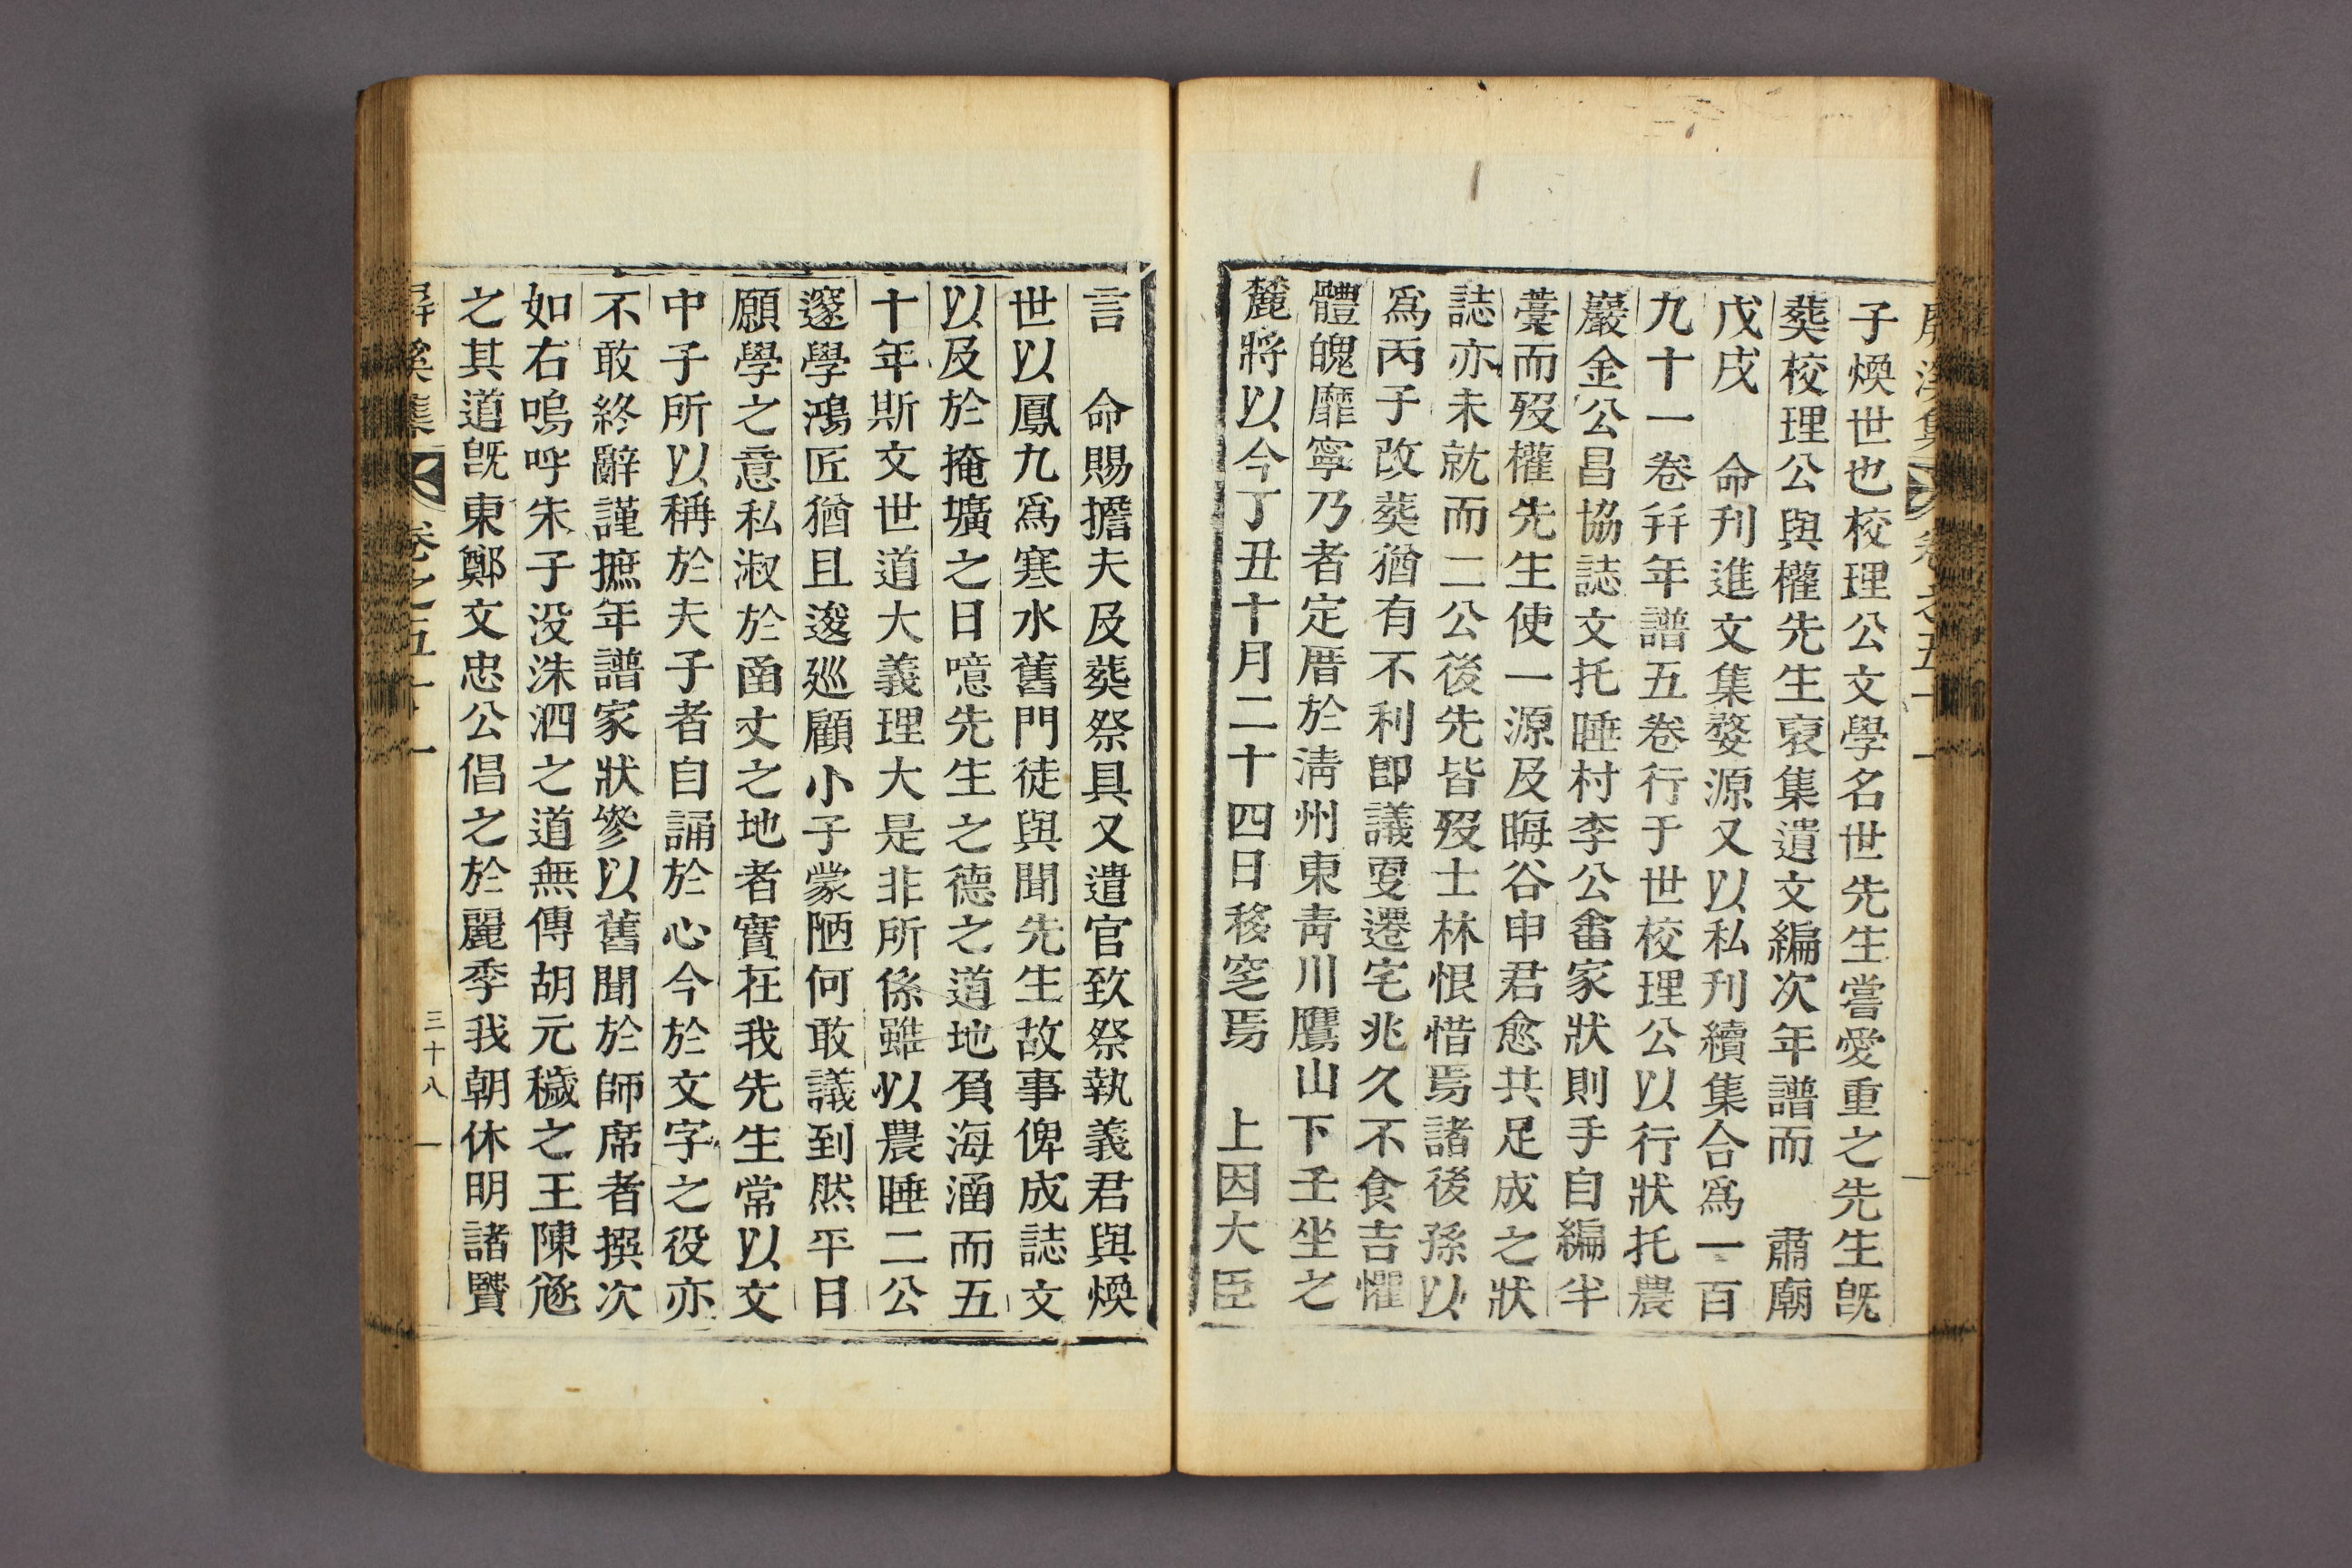 屛溪集 卷之五十一
子煥世也校理公文學名世先生嘗愛重之先生旣
葬校理公與權先生裒集遺文編次年譜而 肅廟
戊戌 命刊進文集婺源又以私刊續集合爲一百
九十一卷幷年譜五卷行于世校理公以行狀托農
巖金公昌協誌文托睡村李公畬家狀則手自編半
藁而歿權先生使一源及晦谷申君愈共足成之狀
誌亦未就而二公後先皆歿士林恨惜焉諸後孫以
爲丙子改葬猶有不利卽議更遷宅兆久不食吉懼
體魄靡寧乃者定厝於淸州東靑川鷹山下壬坐之
麓將以今丁丑十月二十四日移窆焉 上因大臣
言 命賜擔夫及葬祭具又遣官致祭執義君與煥
世以鳳九爲寒水舊門徒與聞先生故事俾成誌文
以及於掩壙之日噫先生之德之道地負海涵而五
十年斯文世道大義理大是非所係雖以農睡二公
邃學鴻匠猶且逡巡顧小子蒙陋何敢議到然平日
願學之意私淑於函丈之地者實在我先生常以文
中子所以稱於夫子者自誦於心今於文字之役亦
不敢終辭謹摭年譜家狀參以舊聞於師席者撰次
如右嗚呼朱子沒洙泗之道無傳胡元穢之王陳遁
之其道旣東鄭文忠公倡之於麗季我朝休明諸賢
屛溪集 卷之五十一 三十八